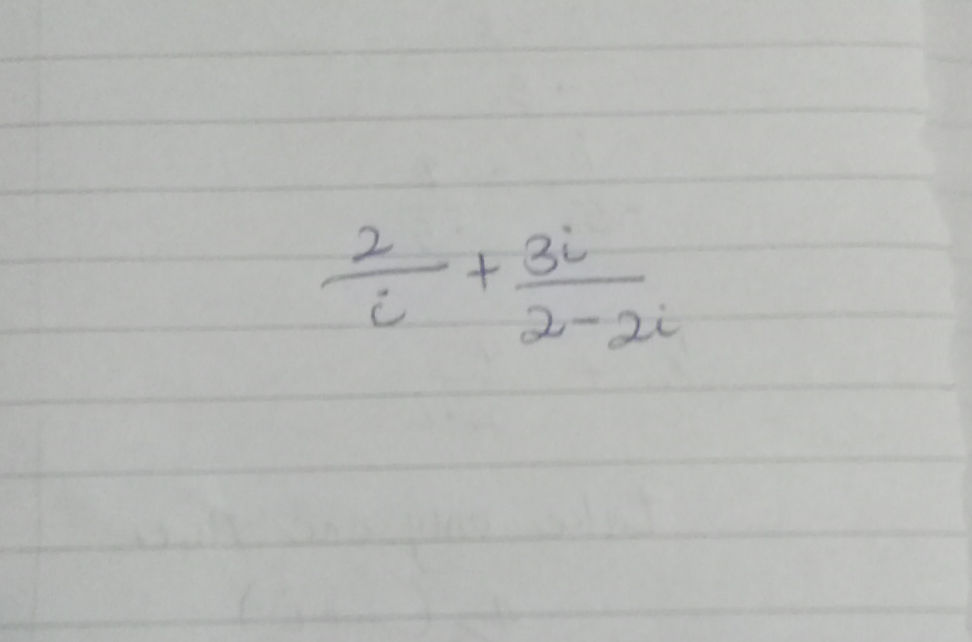 2/i + 3i/2-2i